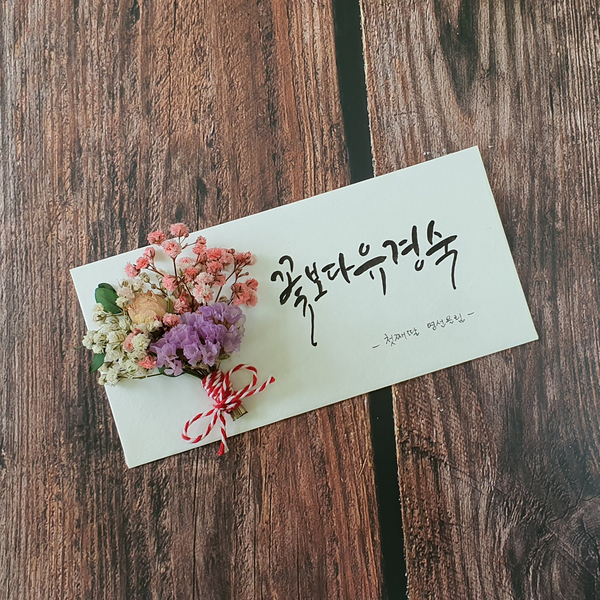 꽃보다유경숙
- 첫째딸 명선올림 -